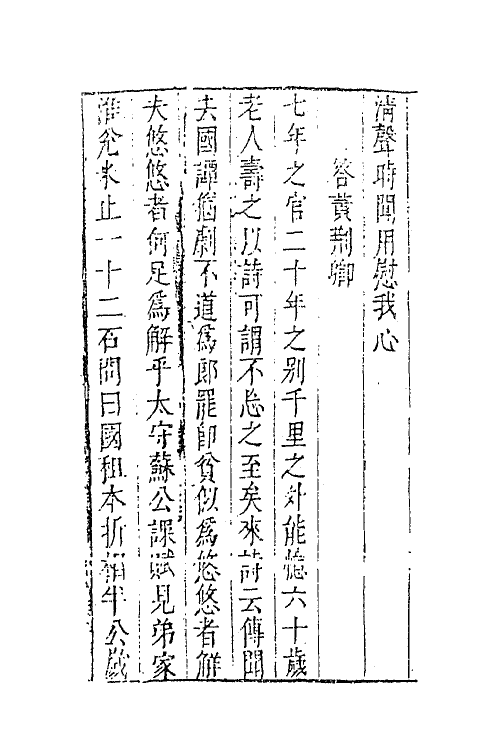 清聲時聞用慰我心
答黃荆卿
七年之官二十年之別千里之外能憶六十歲
老人壽之以詩可謂不忘之至矣來詩云傳聞
去國譚猶劇不道爲郎罷卽貧似爲悠悠者解
夫悠悠者何足爲解乎太守蘇公課賦見弟家
淮兊米止一十二石問曰國租本折相半公歲